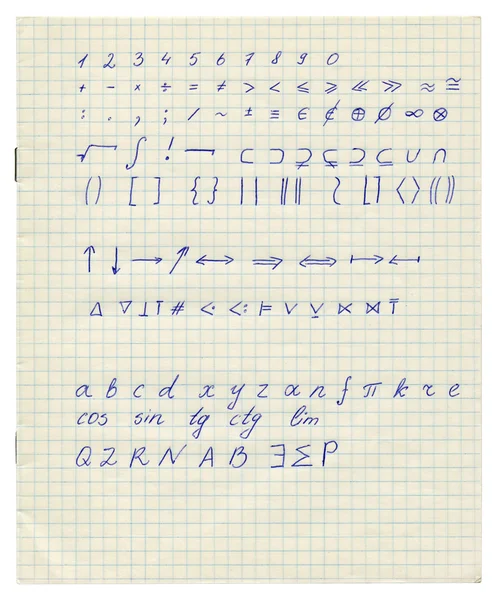 1 2 3 4 5 6 7 8 9 0
+ - × ÷ = ≠ > < ≤ ≥ ≪ ≫ ≈ ≅
: . , ; / ~ ± ≡ ∈ ∉ ⊕ Ø ∞ ⊗
√ ∫ ! — ⊂ ⊃ ⊋ ⊊ ⊇ ⊆ ∪ ∩
( ) [ ] { } | | ‖ ‖ ⌊ ⌋ ⟨ ⟩ (( ))
↑ ↓ → ↗ ↔ ⇒ ⇔ ↦ ↤
Δ ∇ ⊥ ⊤ # <· <: ⊨ ∨ ⊻ ⋉ ⋈
a b c d x y z α n f π k r e
cos sin tg ctg lim
Q Z R N A B ∃ Σ P